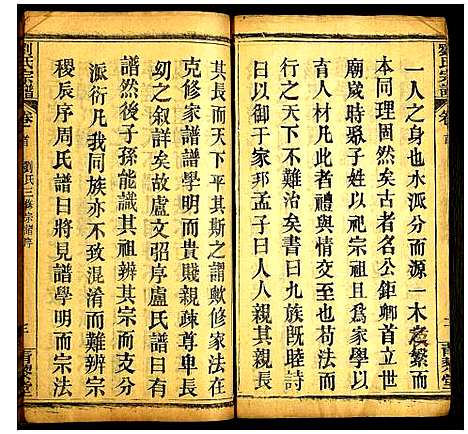 劉氏宗譜
卷首
二
一人之身也水派分而源一木老繁而
本同理固然矣古者名公鉅卿首立世
廟歲時聚子姓以祀宗祖爲家學以
育人材凡此者禮與情交至也苟法而
行之天下不難治矣書曰九族既睦詩
曰以御于家邦孟子曰人人親其親長
其長而天下平其斯之謂歟修家法在
克修家譜譜學明而貴賤親疎尊卑長
幼之叙詳矣故盧文弨序盧氏譜曰有
譜然後子孫能識其祖辨其宗而支分
派衍凡我同族亦不致混淆而難辨宗
稷辰序周氏譜曰將見譜學明而宗法
劉氏宗譜
卷首
劉氏三修宗譜序
三
青藜堂